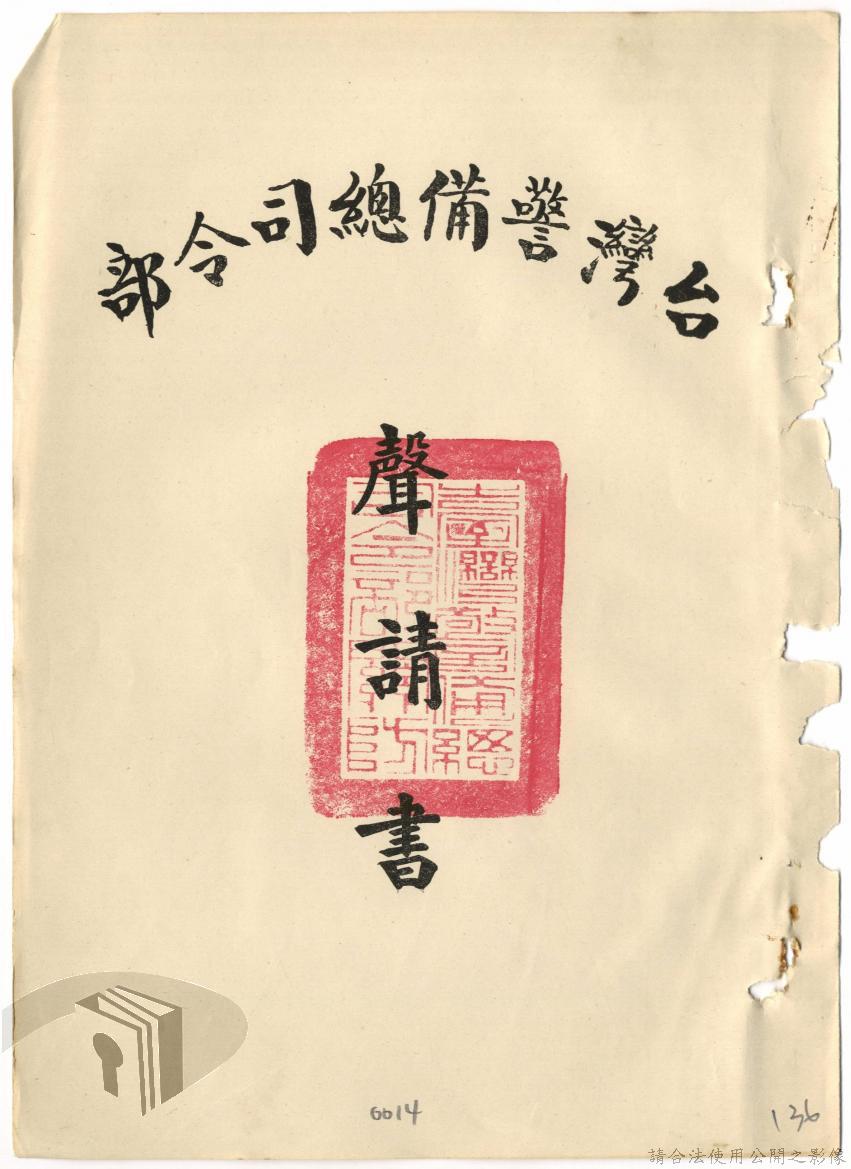 台灣警備總司令部
聲請書
臺灣警備總
司令部關防
0014
136
請合法使用公開之影像